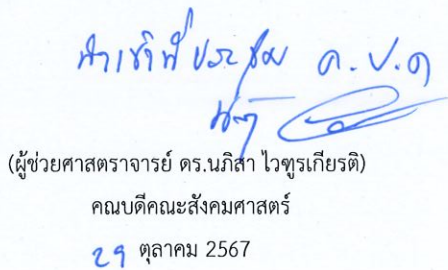 นำเข้าที่ประชุม ค.บ.ค
(ผู้ช่วยศาสตราจารย์ ดร.นภิสา ไวฑูรเกียรติ)
คณบดีคณะสังคมศาสตร์
29 ตุลาคม 2567